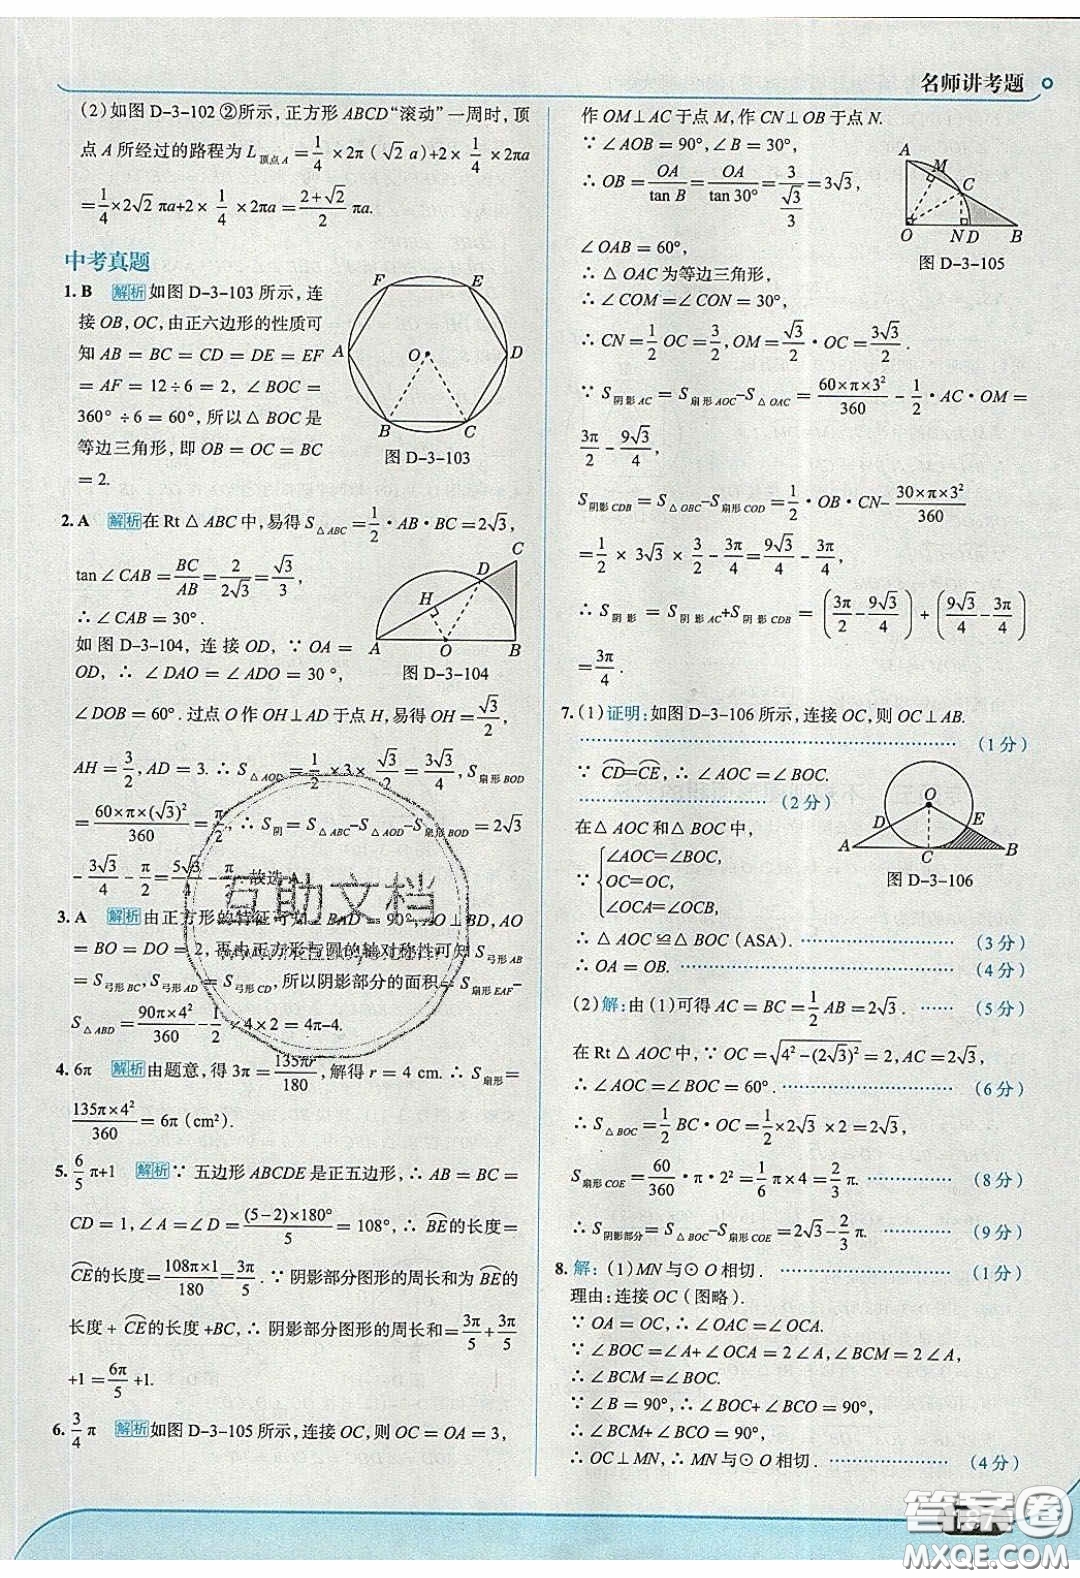 名师讲考题
(2)如图 D-3-102 ②所示，正方形 ABCD“滚动”一周时，顶
点 A 所经过的路程为 L顶点A = 1/4 × 2π (√2 a)+2× 1/4 × 2πa
= 1/4 ×2√2 πa+2× 1/4 × 2πa = (2+√2)/2 πa.
中考真题
1. B 解析 如图 D-3-103 所示，连
接 OB，OC，由正六边形的性质可
知 AB = BC = CD = DE = EF
= AF = 12÷6 = 2，∠BOC =
360°÷6 = 60°，所以△BOC 是
等边三角形，即 OB = OC = BC
= 2.
F E A O D B C
图 D-3-103
2. A 解析 在 Rt△ABC 中，易得 S△ABC = 1/2 · AB · BC = 2√3，
tan∠CAB = BC/AB = 2/(2√3) = √3/3，
∴ ∠CAB = 30°.
如图 D-3-104，连接 OD，∵ OA =
OD，∴ ∠DAO = ∠ADO = 30°，
C D H A O B
图 D-3-104
∠DOB = 60°. 过点 O 作 OH⊥AD 于点 H，易得 OH = √3/2，
AH = 3/2，AD = 3. ∴ S△AOD = 1/2 ×3× √3/2 = 3√3/4，S扇形BOD
= 60×π×(√3)²/360 = π/2，∴ S阴 = S△ABC−S△AOD−S扇形BOD = 2√3
− 3√3/4 − π/2 = 5√3/4 − π/2. 故选 A.
3. A 解析 由正方形的特征可知 ∠BAD = 90°，AO⊥BD，AO
= BO = DO = 2，再由正方形与圆的轴对称性可知 S弓形AB
= S弓形BC，S弓形AD = S弓形CD，所以阴影部分的面积= S扇形EAF−
S△ABD = 90π×4²/360 − 1/2 ×4×2 = 4π−4.
4. 6π 解析 由题意，得 3π = 135πr/180，解得 r = 4 cm. ∴ S扇形 =
135π×4²/360 = 6π (cm²).
5. 6/5 π+1 解析 ∵ 五边形 ABCDE 是正五边形，∴ AB = BC =
CD = 1，∠A = ∠D = (5−2)×180°/5 = 108°，∴ BE的长度=
CE的长度= 108π×1/180 = 3π/5. ∵ 阴影部分图形的周长和为 BE的
长度+ CE的长度 +BC，∴ 阴影部分图形的周长和= 3π/5 + 3π/5
+1 = 6π/5 +1.
6. 3/4 π 解析 如图 D-3-105 所示，连接 OC，则 OC = OA = 3，
作 OM⊥AC 于点 M，作 CN⊥OB 于点 N.
∵ ∠AOB = 90°，∠B = 30°，
∴ OB = OA/tan B = OA/tan 30° = 3/(√3/3) = 3√3，
∠OAB = 60°，
∴ △OAC 为等边三角形，
∴ ∠COM = ∠CON = 30°，
A M C O N D B
图 D-3-105
∴ CN = 1/2 OC = 3/2，OM = √3/2 · OC = 3√3/2.
∵ S阴影AC = S扇形AOC−S△OAC = 60×π×3²/360 − 1/2 · AC · OM =
3π/2 − 9√3/4，
S阴影CDB = S△OBC−S扇形COD = 1/2 · OB · CN− 30×π×3²/360
= 1/2 × 3√3 × 3/2 − 3π/4 = 9√3/4 − 3π/4，
∴ S阴影 = S阴影AC+S阴影CDB = (3π/2 − 9√3/4) + (9√3/4 − 3π/4)
= 3π/4.
7. (1)证明：如图 D-3-106 所示，连接 OC，则 OC⊥AB.
(1分)
∵ CD=CE，∴ ∠AOC = ∠BOC.
(2分)
在△AOC 和△BOC 中，
∵ { ∠AOC=∠BOC，
OC=OC，
∠OCA=∠OCB，
O D E A C B
图 D-3-106
∴ △AOC≌△BOC (ASA). (3分)
∴ OA = OB. (4分)
(2)解：由(1)可得 AC = BC = 1/2 AB = 2√3. (5分)
在 Rt△AOC 中，∵ OC = √(4²−(2√3)²) = 2，AC = 2√3，
∴ ∠AOC = ∠BOC = 60°. (6分)
∴ S△BOC = 1/2 BC · OC = 1/2 × 2√3 × 2 = 2√3，
S扇形COE = 60/360 · π · 2² = 1/6 π×4 = 2/3 π. (8分)
∴ S阴影部分 = S△BOC−S扇形COE = 2√3− 2/3 π. (9分)
8. 解：(1)MN 与⊙O 相切. (1分)
理由：连接 OC（图略）.
∵ OA = OC，∴ ∠OAC = ∠OCA.
∵ ∠BOC = ∠A+∠OCA = 2∠A，∠BCM = 2∠A，
∴ ∠BCM = ∠BOC.
∵ ∠B = 90°，∴ ∠BOC+∠BCO = 90°，
∴ ∠BCM+∠BCO = 90°，
∴ OC⊥MN，∴ MN 与⊙O 相切. (4分)
互助文档
答案圈
MXQE.COM